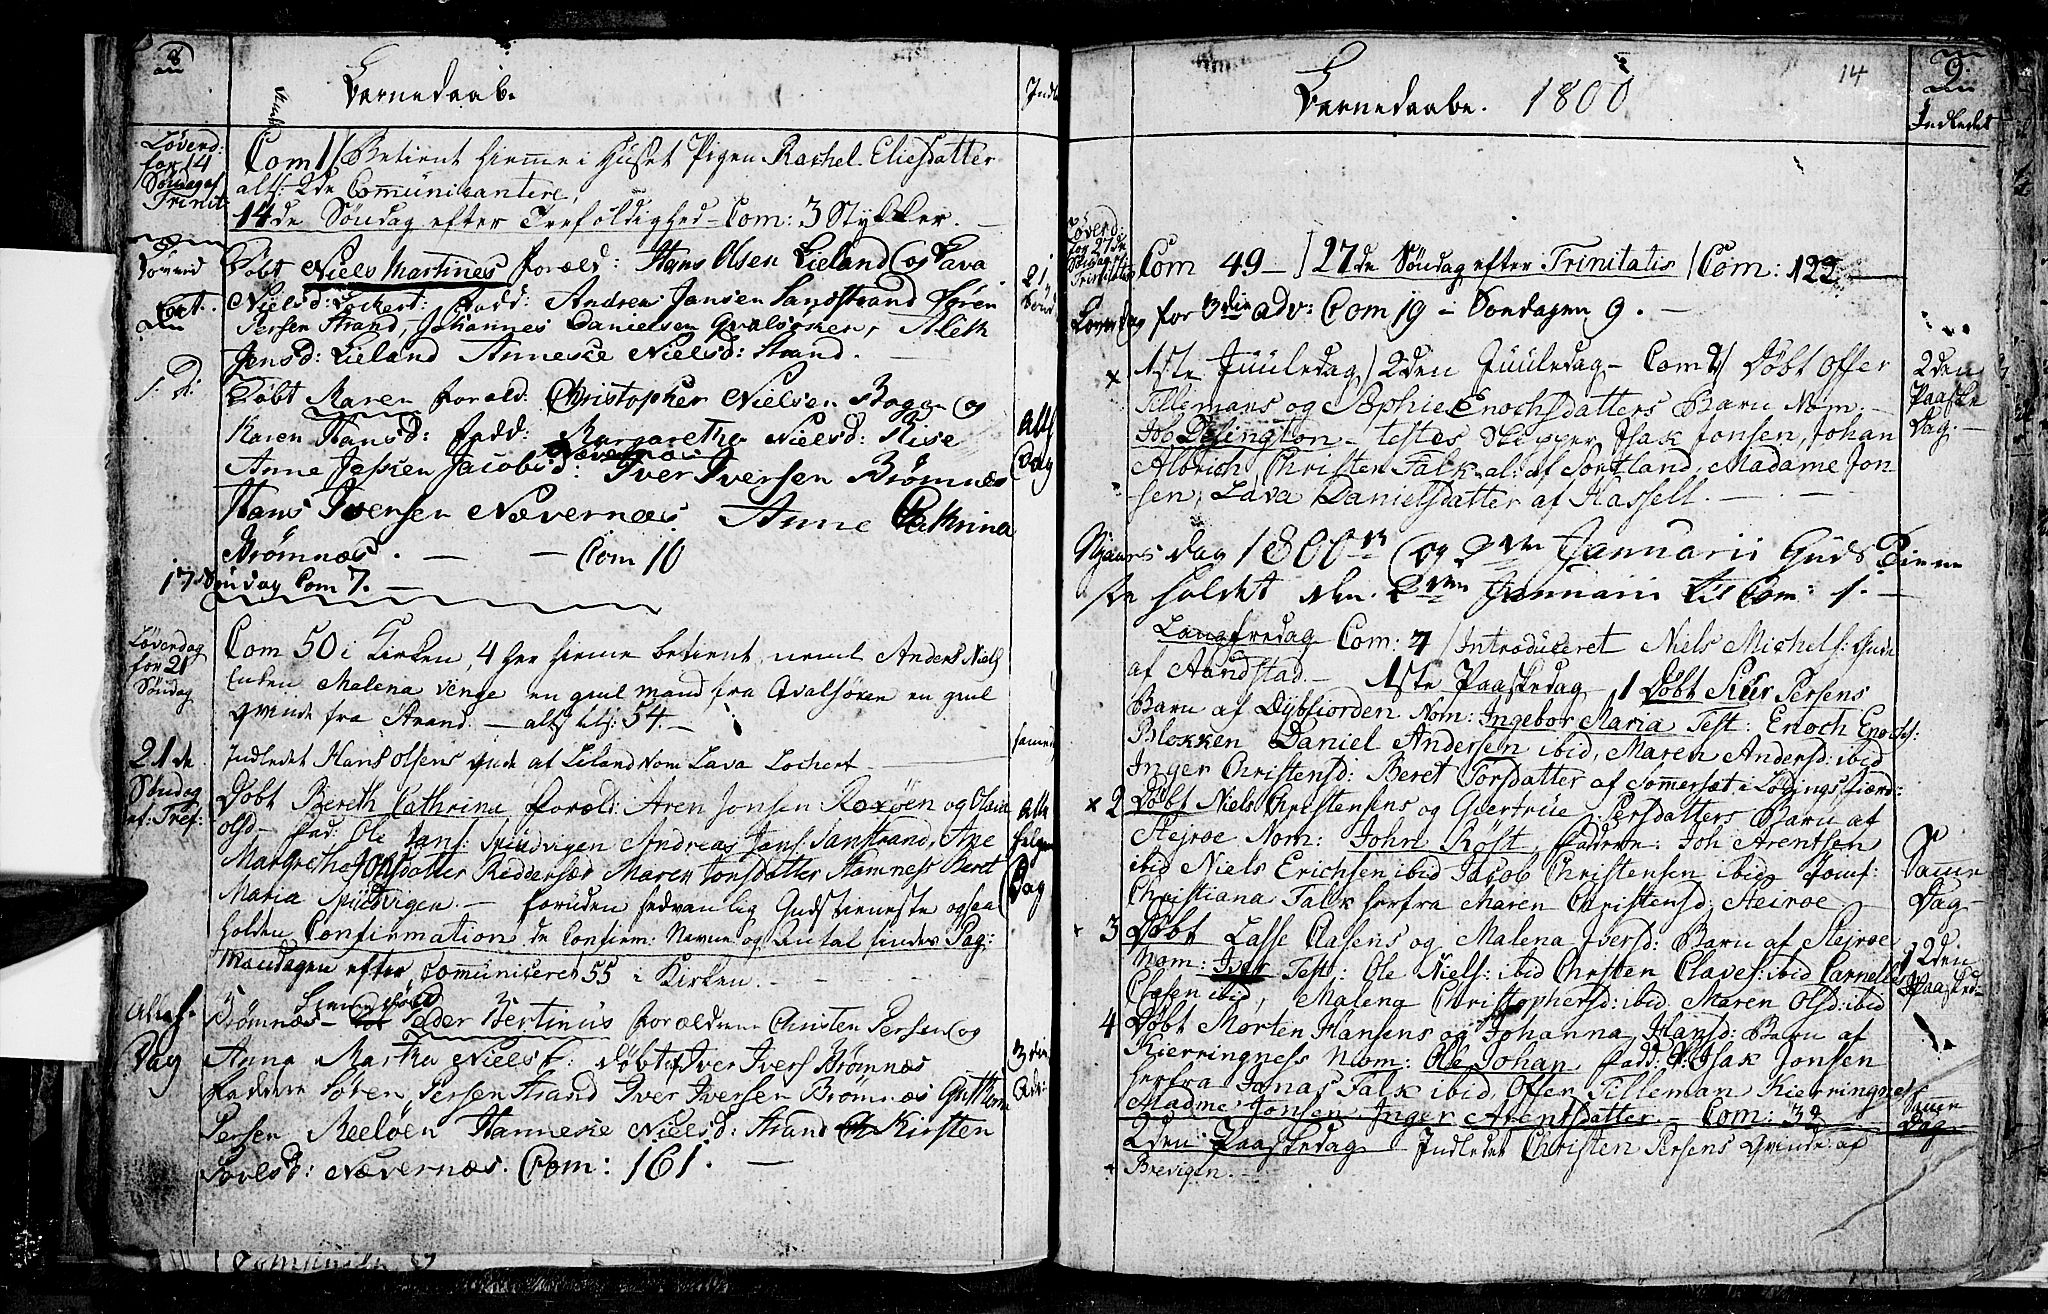 8
Barnedaab.
Indl
Løverd:
for 14
Søndag ef
Trinit:
Com 1/ Betient hieme i Huset Pigen Rachel Eliesdatter
alts: 2de Comunicantere,
14de Søndag efter Trefoldighed – Com: 3 Stykker. –
Døbt Niels Martines foræld: Hans Olsen Lieland og Lava
Nielsd: Lockert: Fadd: Andreas Jansen Sandstrand Sören
Persen Strand, Johannes Danielsen Qvalsöken, Alek
Jensd: Lieland Anneske Nielsd: Strand. –
21
Døbt Karen foræld: Christopher Nielsen Bogen og
Karen Hansd: Fadd: Margarethe Nielsd: Rise
Nævernæs
Anne Jessien Jacobsd: Iver Iversen Brömnæs
Hans Iversen Nævernæs. Anne Cathrina
Brömnæs. – – Com 10
Alle
Dag
17 Søndag Com 7. –
Løverdag
for 21
Søndag
Com 50 i Kirken, 4 her hieme betient, neml Anders Niels
Enken Malena Venge en gml mand fra Qvalsören en gml
qvinde fra Strand. – alts 54. –
21de
Søndag
ef: Tref:
Indledet Hans Olsens qvde af Lieland Nom Lava Lochert
Døbt Berith Cathrina foræld: Aren Jonsen Roxöen og Olava
Olsd – Fad: Ole Jans: Spindvigen Andreas Jans: Sanstrand, Ane
Margrethe Jonsdatter Reddersæt Maren Jonsdatter Hamness Beret
Maria Spindvigen. – foruden sedvanlig Gudstieneste ogsaa
holden Confirmation de Confirm: Navne og Antal findes Pag:
Mandagen efter Communiceret 55 i Kirken. –
Alle
helgen
Dag
Brömnæs – Peder Bertinus forældrene Christen Persen og
Anna Marta Nielsd: Døbt af Iver Ivers Brömnæs
faddere Sören Persen Strand Iver Iversen Brömnæs Guttorm
Persen Reelöen Hanneske Nielsd: Strand Kirsten
Povelsd: Nævernæs. Com: 161. –
3die
Adv:
Barnedaabe. 1800
14
9
Indledet
Løverd:
for 27de
Søndag ef
Trinitatis
Com 49 – / 27de Söndag efter Trinitatis / Com: 122 –
Løverdag for 3die Adv: Com 19 – Søndagen 9. –
x 1ste Juuledag / 2den Juuledag – Com 2/ Døbt Offer
Tillemans og Sophie Enochsdatters Barn Nom. –
Job Delington – testes Skipper Isak Jonsen, Johan
Albrich Christen Falk al: af Sortland, Madame Jon-
sen, Lava Danielsdatter af Hassell. –
2den
Paaske
Dag. –
Nyaars dag 1800 og 2den Januarii Guds Tiene
ste holdet den 2den Januarii til Com: 1. –
Langfredag Com: 4 / Introduceret Niels Michels: qvde
af Aandstad. – 1ste Paaskedag – 1 Døbt Siur Persens
Barn af Dybfiorden Nom: Ingebor Maria Test: Enoch Enochs:
Blokken Daniel Andersen ibid, Maren Andersd: ibid
Inger Christensd: Beret Torsdatter af Somersæt i Lödingsfiord:
x 2 Døbt Niels Christensens og Geertrue Persdatters Barn af
Steiroe Nom: John Röst, Faddere: Joh Arentsen
ibid Niels Erichsen ibid Jacob Christensen ibid Jomf:
Christiana Falk herfra Maren Christensd: Steiroe –
Same
Dag –
3 Døbt Lasse Clasens og Malena Iversd: Barn af Steiroe
Nom: Iver Test: Ole Niels: ibid Christen Claves: ibid Carnelius
Clasen ibid, Malena Christophersd: ibid Maren Olsd: ibid
2den
Paasked–
4 Døbt Morten Hansens og Johanna Hansd: Barn af
Kierringness Nom: Ole Johan Fadd: Isak Jonsen
herfra Jonas Falk ibid, Offer Tilleman Kierringnes
Madme Jonsen Inger Arentsdatter – Com: 32
Same
Dag
2den Paaskedag Indledet Christen Persens Qvinde af
Brevigen. –